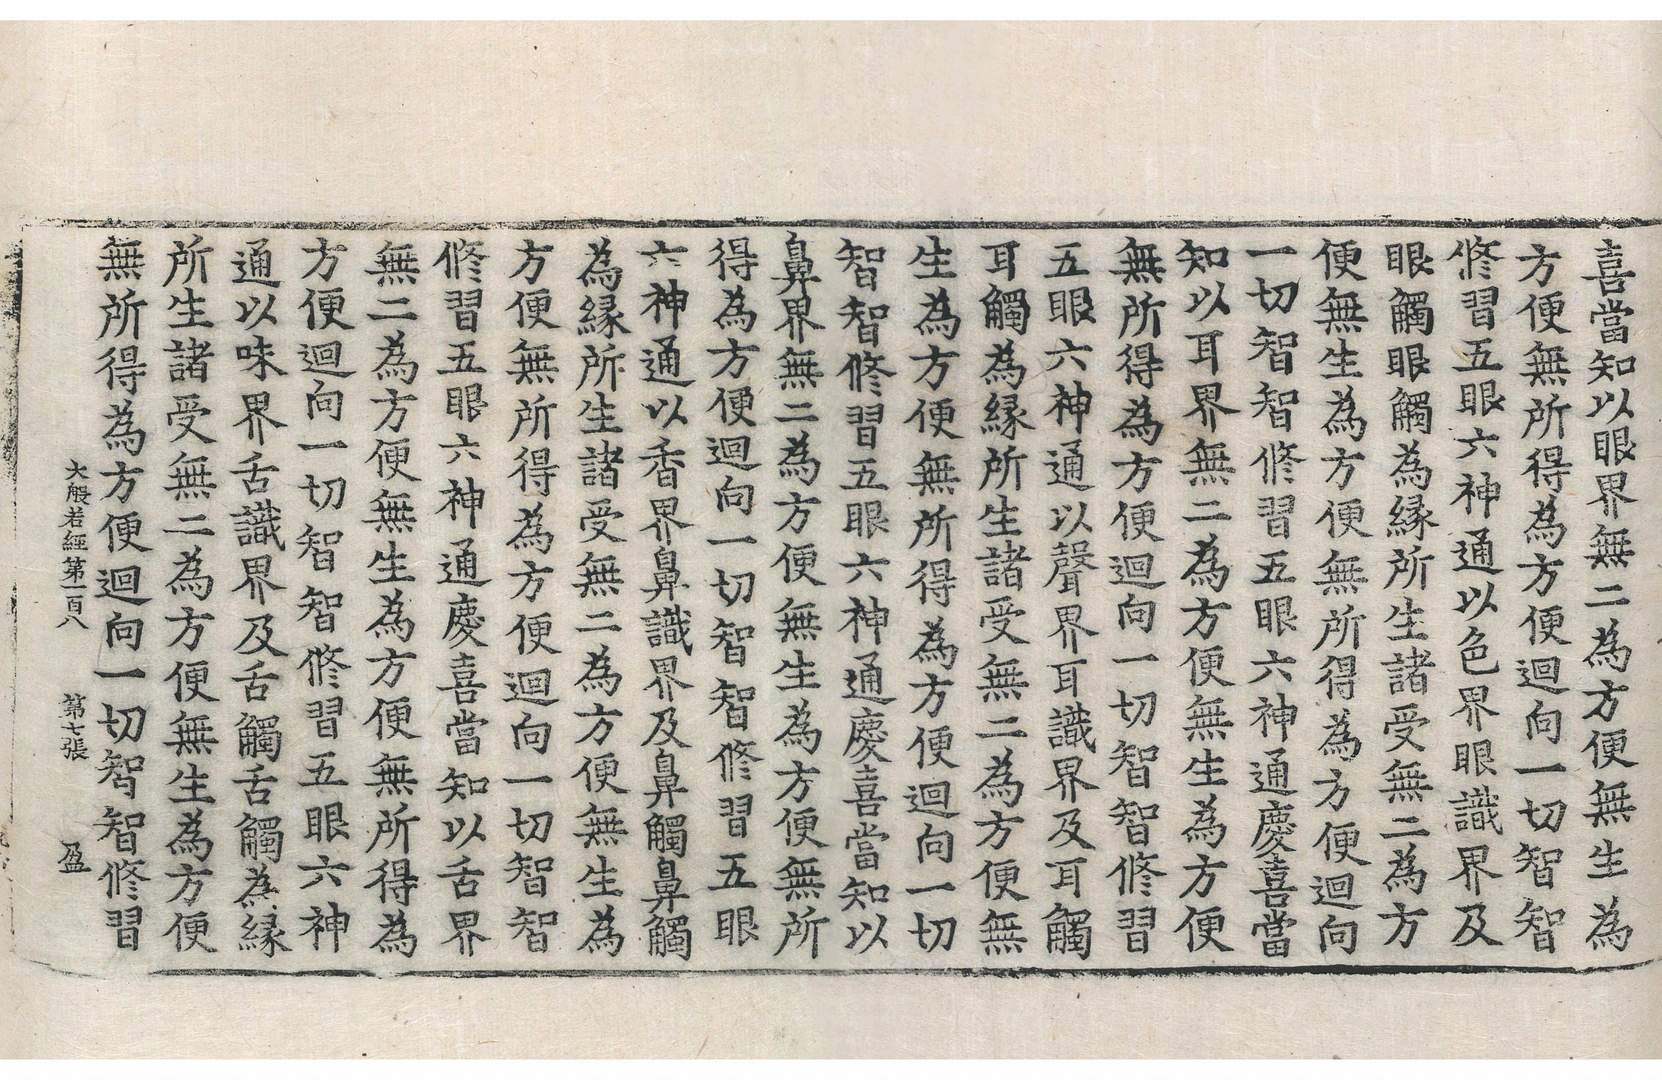 喜當知以眼界無二為方便無生為
方便無所得為方便迴向一切智智
修習五眼六神通以色界眼識界及
眼觸眼觸為縁所生諸受無二為方
便無生為方便無所得為方便迴向
一切智智修習五眼六神通慶喜當
知以耳界無二為方便無生為方便
無所得為方便迴向一切智智修習
五眼六神通以聲界耳識界及耳觸
耳觸為縁所生諸受無二為方便無
生為方便無所得為方便迴向一切
智智修習五眼六神通慶喜當知以
鼻界無二為方便無生為方便無所
得為方便迴向一切智智修習五眼
六神通以香界鼻識界及鼻觸鼻觸
為縁所生諸受無二為方便無生為
方便無所得為方便迴向一切智智
修習五眼六神通慶喜當知以舌界
無二為方便無生為方便無所得為
方便迴向一切智智修習五眼六神
通以味界舌識界及舌觸舌觸為縁
所生諸受無二為方便無生為方便
無所得為方便迴向一切智智修習
大般若經第一百八 第七張 盈